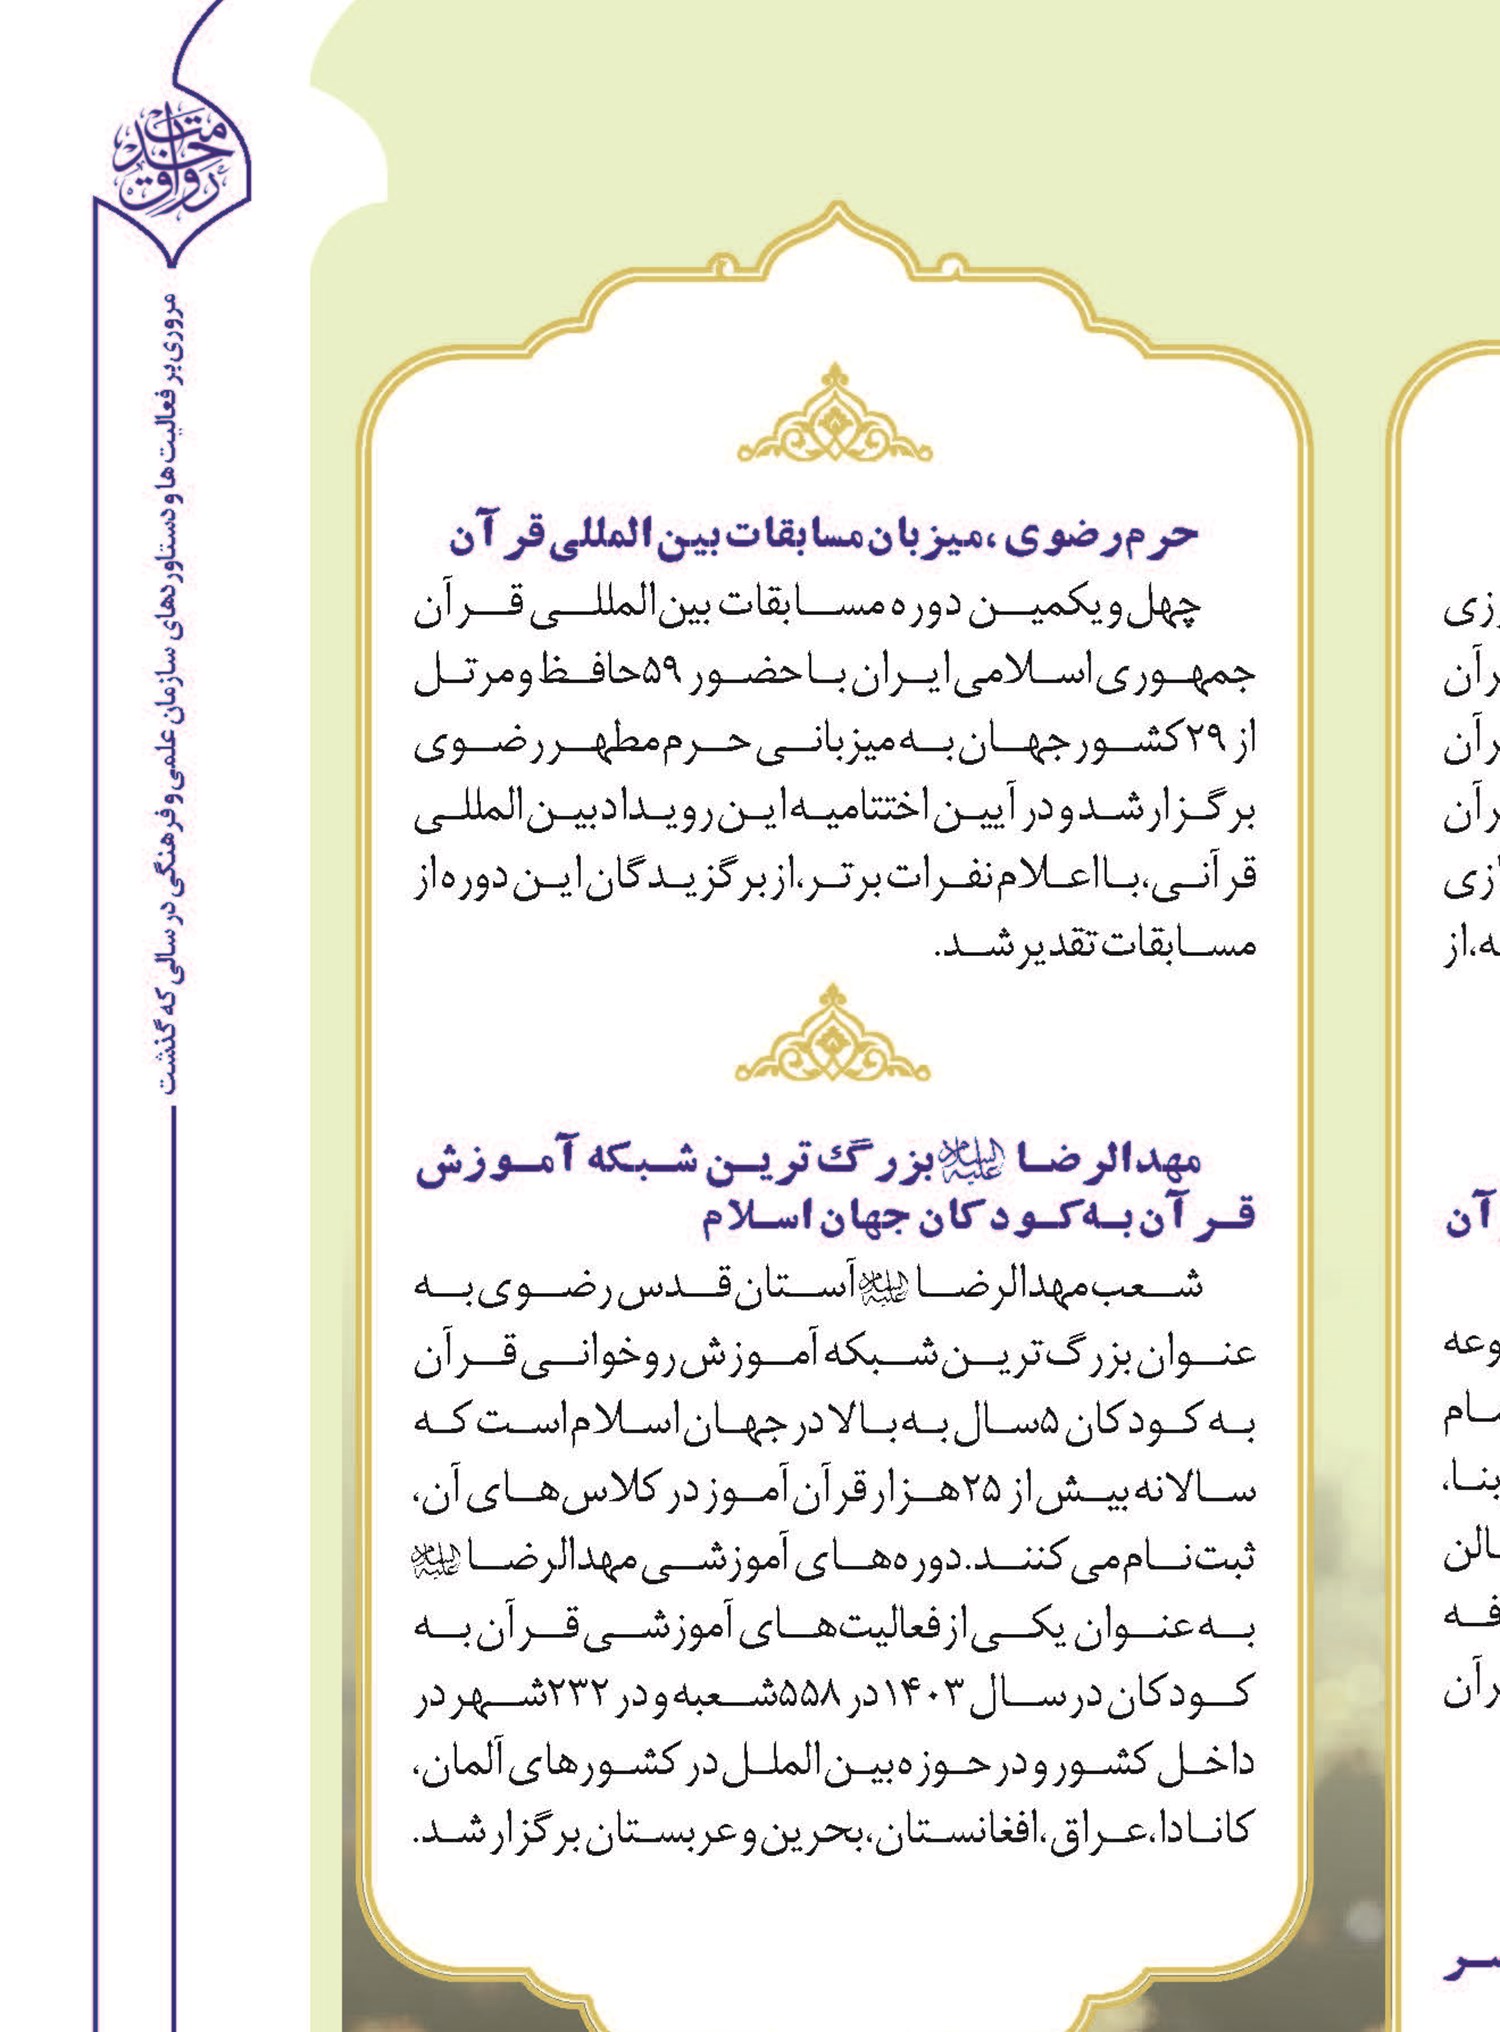 رواق خدمت
مروری بر فعالیت ها و دستاوردهای سازمان علمی و فرهنگی در سالی که گذشت
حرم رضوی، میزبان مسابقات بین المللی قرآن
چهل و یکمین دوره مسابقات بین المللی قرآن
جمهوری اسلامی ایران با حضور ۵۹ حافظ و مرتل
از ۲۹ کشور جهان به میزبانی حرم مطهر رضوی
برگزار شد و در آیین اختتامیه این رویداد بین المللی
قرآنی، با اعلام نفرات برتر، از برگزیدگان این دوره از
مسابقات تقدیر شد.
مهدالرضا علیه السلام بزرگ ترین شبکه آموزش
قرآن به کودکان جهان اسلام
شعب مهدالرضا علیه السلام آستان قدس رضوی به
عنوان بزرگ ترین شبکه آموزش روخوانی قرآن
به کودکان ۵ سال به بالا در جهان اسلام است که
سالانه بیش از ۲۵ هزار قرآن آموز در کلاس های آن،
ثبت نام می کنند. دوره های آموزشی مهدالرضا علیه السلام
به عنوان یکی از فعالیت های آموزشی قرآن به
کودکان در سال ۱۴۰۳ در ۵۵۸ شعبه و در ۲۳۲ شهر در
داخل کشور و در حوزه بین الملل در کشورهای آلمان،
کانادا، عراق، افغانستان، بحرین و عربستان برگزار شد.